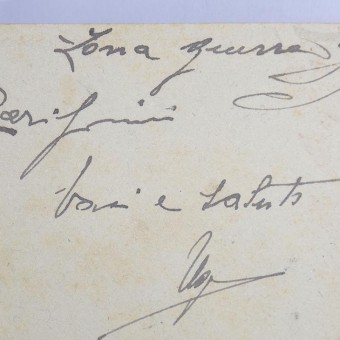 Zona guerra
Carissimi
baci e saluti